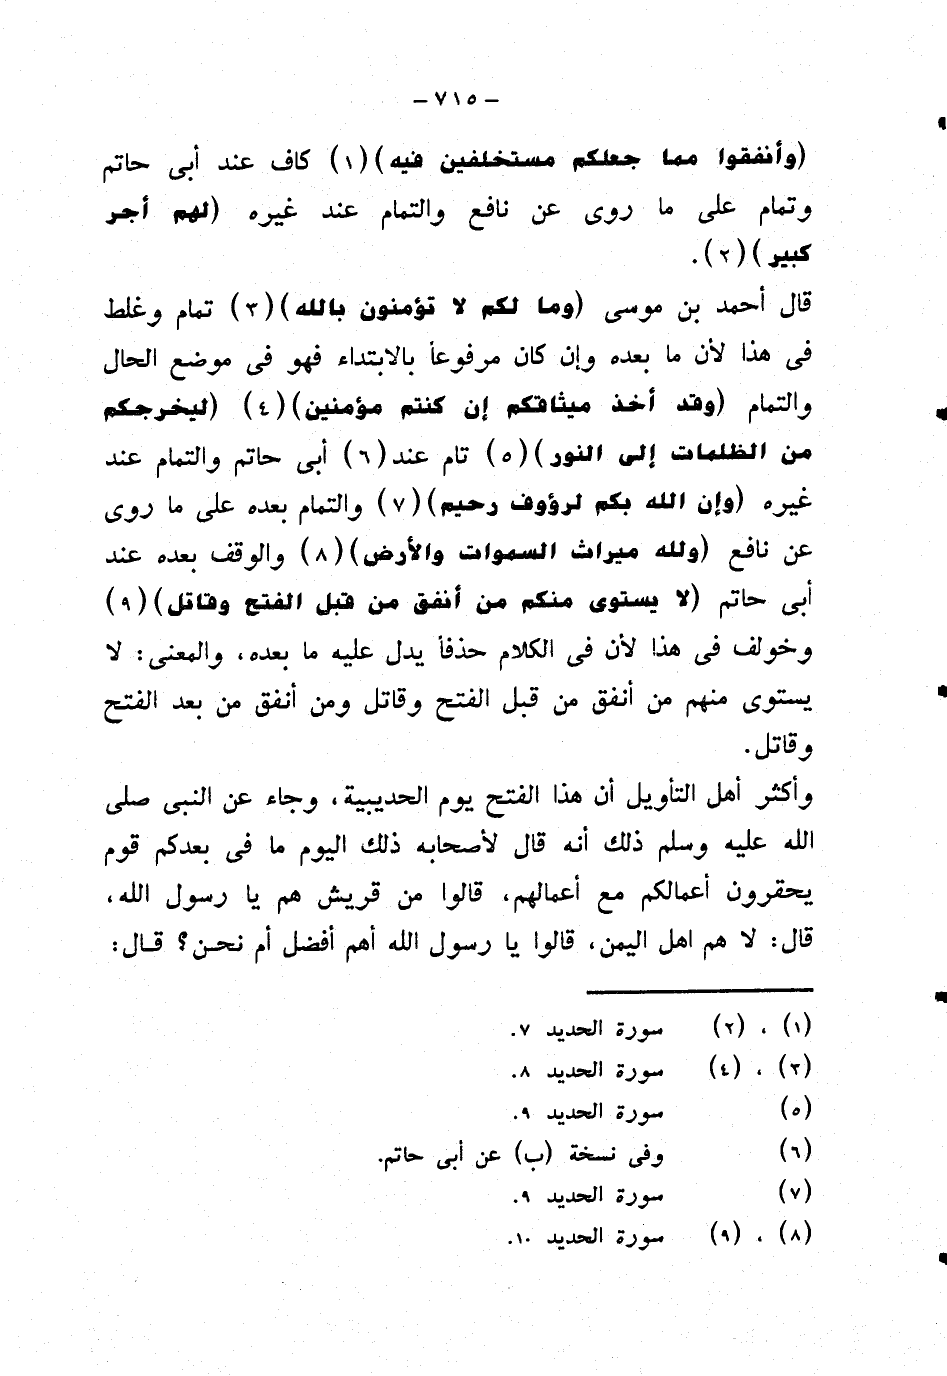 – ٧١٥ –
(وأنفقوا مما جعلكم مستخلفين فيه)(١) كاف عند أبى حاتم
وتمام على ما روى عن نافع والتمام عند غيره (لهم أجر
كبير)(٢).
قال أحمد بن موسى (وما لكم لا تؤمنون بالله)(٣) تمام وغلط
فى هذا لأن ما بعده وإن كان مرفوعاً بالابتداء فهو فى موضع الحال
والتمام (وقد أخذ ميثاقكم إن كنتم مؤمنين)(٤) (ليخرجكم
من الظلمات إلى النور)(٥) تام عند(٦) أبى حاتم والتمام عند
غيره (وإن الله بكم لرؤوف رحيم)(٧) والتمام بعده على ما روى
عن نافع (ولله ميراث السموات والأرض)(٨) والوقف بعده عند
أبى حاتم (لا يستوى منكم من أنفق من قبل الفتح وقاتل)(٩)
وخولف فى هذا لأن فى الكلام حذفاً يدل عليه ما بعده، والمعنى: لا
يستوى منهم من أنفق من قبل الفتح وقاتل ومن أنفق من بعد الفتح
وقاتل.
وأكثر أهل التأويل أن هذا الفتح يوم الحديبية، وجاء عن النبى صلى
الله عليه وسلم ذلك أنه قال لأصحابه ذلك اليوم ما فى بعدكم قوم
يحقرون أعمالكم مع أعمالهم، قالوا من قريش هم يا رسول الله،
قال: لا هم اهل اليمن، قالوا يا رسول الله أهم أفضل أم نحن؟ قال:
(١) ، (٢) سورة الحديد ٧.
(٣) ، (٤) سورة الحديد ٨.
(٥) سورة الحديد ٩.
(٦) وفى نسخة (ب) عن أبى حاتم.
(٧) سورة الحديد ٩.
(٨) ، (٩) سورة الحديد ١٠.